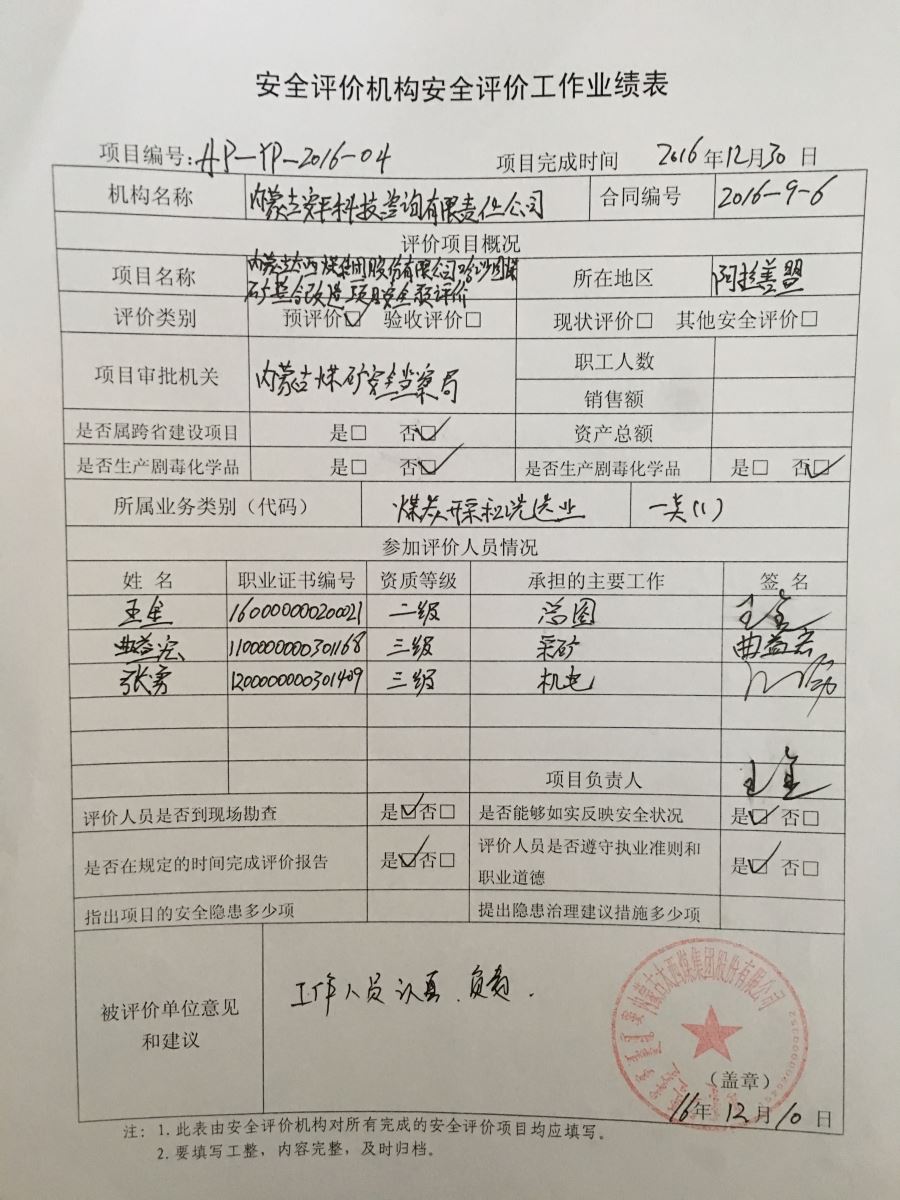 安全评价机构安全评价工作业绩表
项目编号:AP-YP-2016-04 项目完成时间 2016年12月30日
机构名称 内蒙古安平科技咨询有限责任公司 合同编号 2016-9-6
评价项目概况
项目名称 内蒙古太西煤集团股份有限公司哈沙图煤
矿整合改造项目安全预评价 所在地区 阿拉善盟
评价类别 预评价☑ 验收评价□ 现状评价□ 其他安全评价□
项目审批机关 内蒙古煤矿安全监察局 职工人数
销售额
是否属跨省建设项目 是□ 否☑ 资产总额
是否生产剧毒化学品 是□ 否☑ 是否生产剧毒化学品 是□ 否☑
所属业务类别(代码) 煤炭开采和洗选业 一类(1)
参加评价人员情况
姓 名 职业证书编号 资质等级 承担的主要工作 签 名
王金 1600000000200021 二级 总图 王金
曲益宏 1100000000301168 三级 采矿 曲益宏
张勇 1200000000301409 三级 机电
项目负责人 王金
评价人员是否到现场勘查 是☑否□ 是否能够如实反映安全状况 是☑否□
是否在规定的时间完成评价报告 是☑否□ 评价人员是否遵守执业准则和
职业道德 是☑否□
指出项目的安全隐患多少项 提出隐患治理建议措施多少项
被评价单位意见
和建议 工作人员认真、负责.
内蒙古太西煤集团股份有限公司
(盖章)
16年12月10日
注:1.此表由安全评价机构对所有完成的安全评价项目均应填写。
2.要填写工整,内容完整,及时归档。